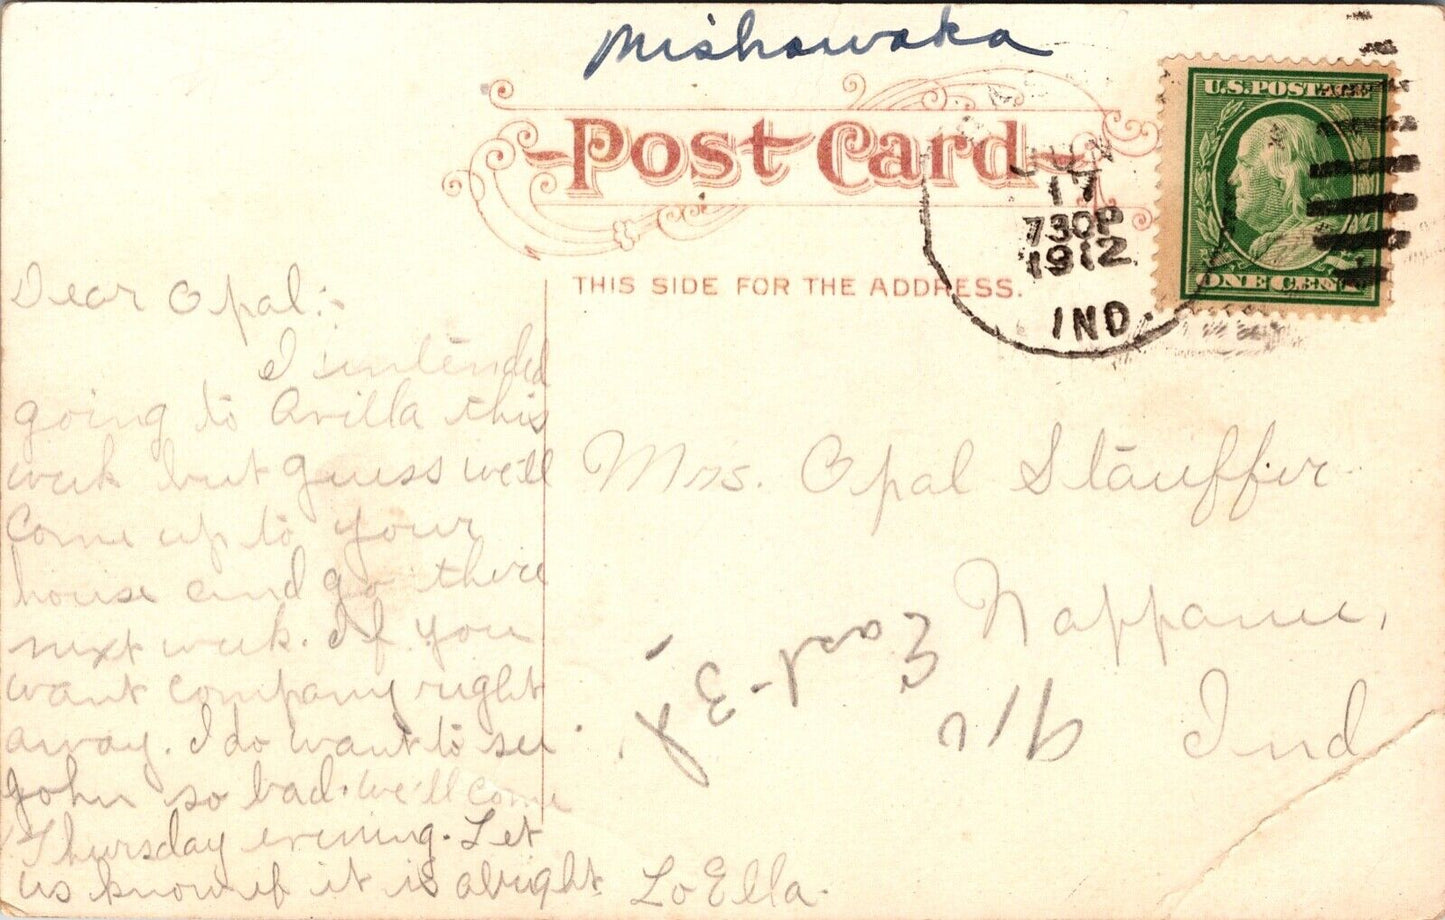 Mishawaka
Post Card
THIS SIDE FOR THE ADDRESS.
JUN
17
730P
1912
IND.
U.S. POSTAGE
ONE CENT
Dear Opal:-
I intended
going to Avilla this
week but guess we'll
come up to your
house and go there
next week. If you
want company right
away. I do want to see
John so bad. We'll come
Thursday evening. Let
us know if it is alright
LoElla.
Mrs. Opal Stauffer
Nappanee,
Ind
East-